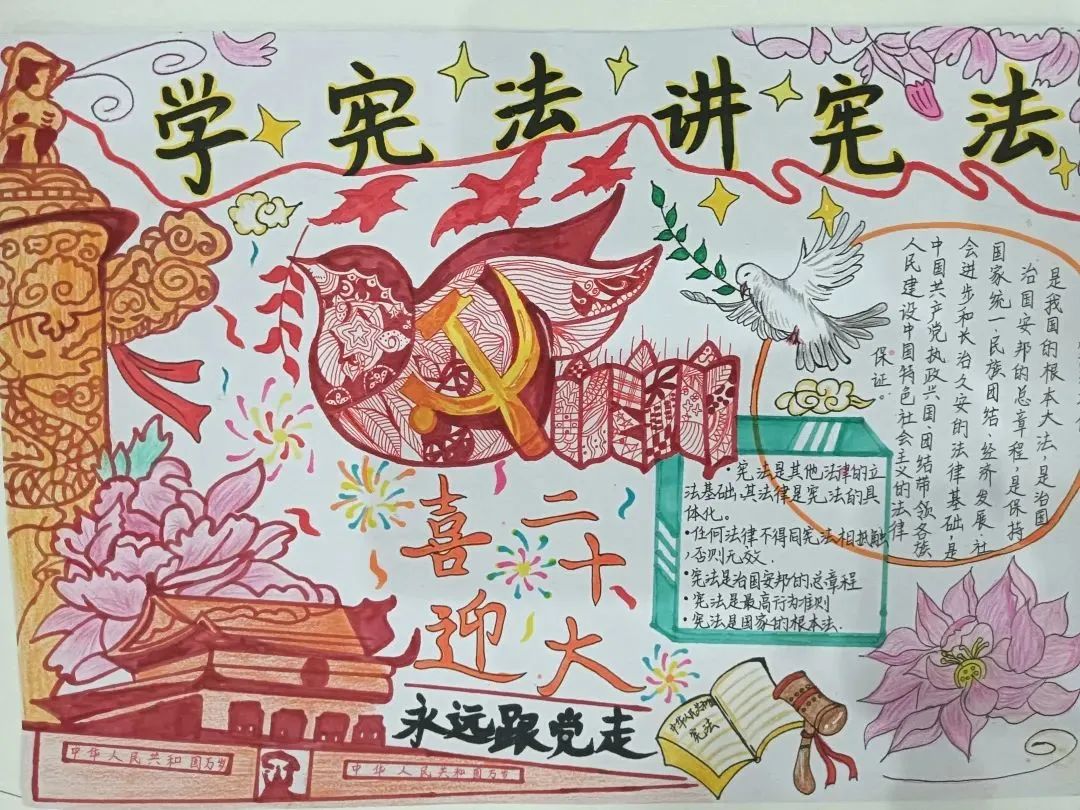 学宪法讲宪法
是我国的根本大法，是治国
治国安邦的总章程，是保持
国家统一、民族团结、经济发展、社
会进步和长治久安的法律基础，是
中国共产党执政兴国、团结带领各族
人民建设中国特色社会主义的法律
保证。
·宪法是其他法律的立
法基础,其法律是宪法的具
体化。
·任何法律不得同宪法相抵触
,否则无效.
·宪法是治国安邦的总章程
·宪法是最高行为准则
·宪法是国家的根本法.
喜迎
二十大
永远跟党走
中华人民共和国
宪法
中华人民共和国万岁
中华人民共和国万岁